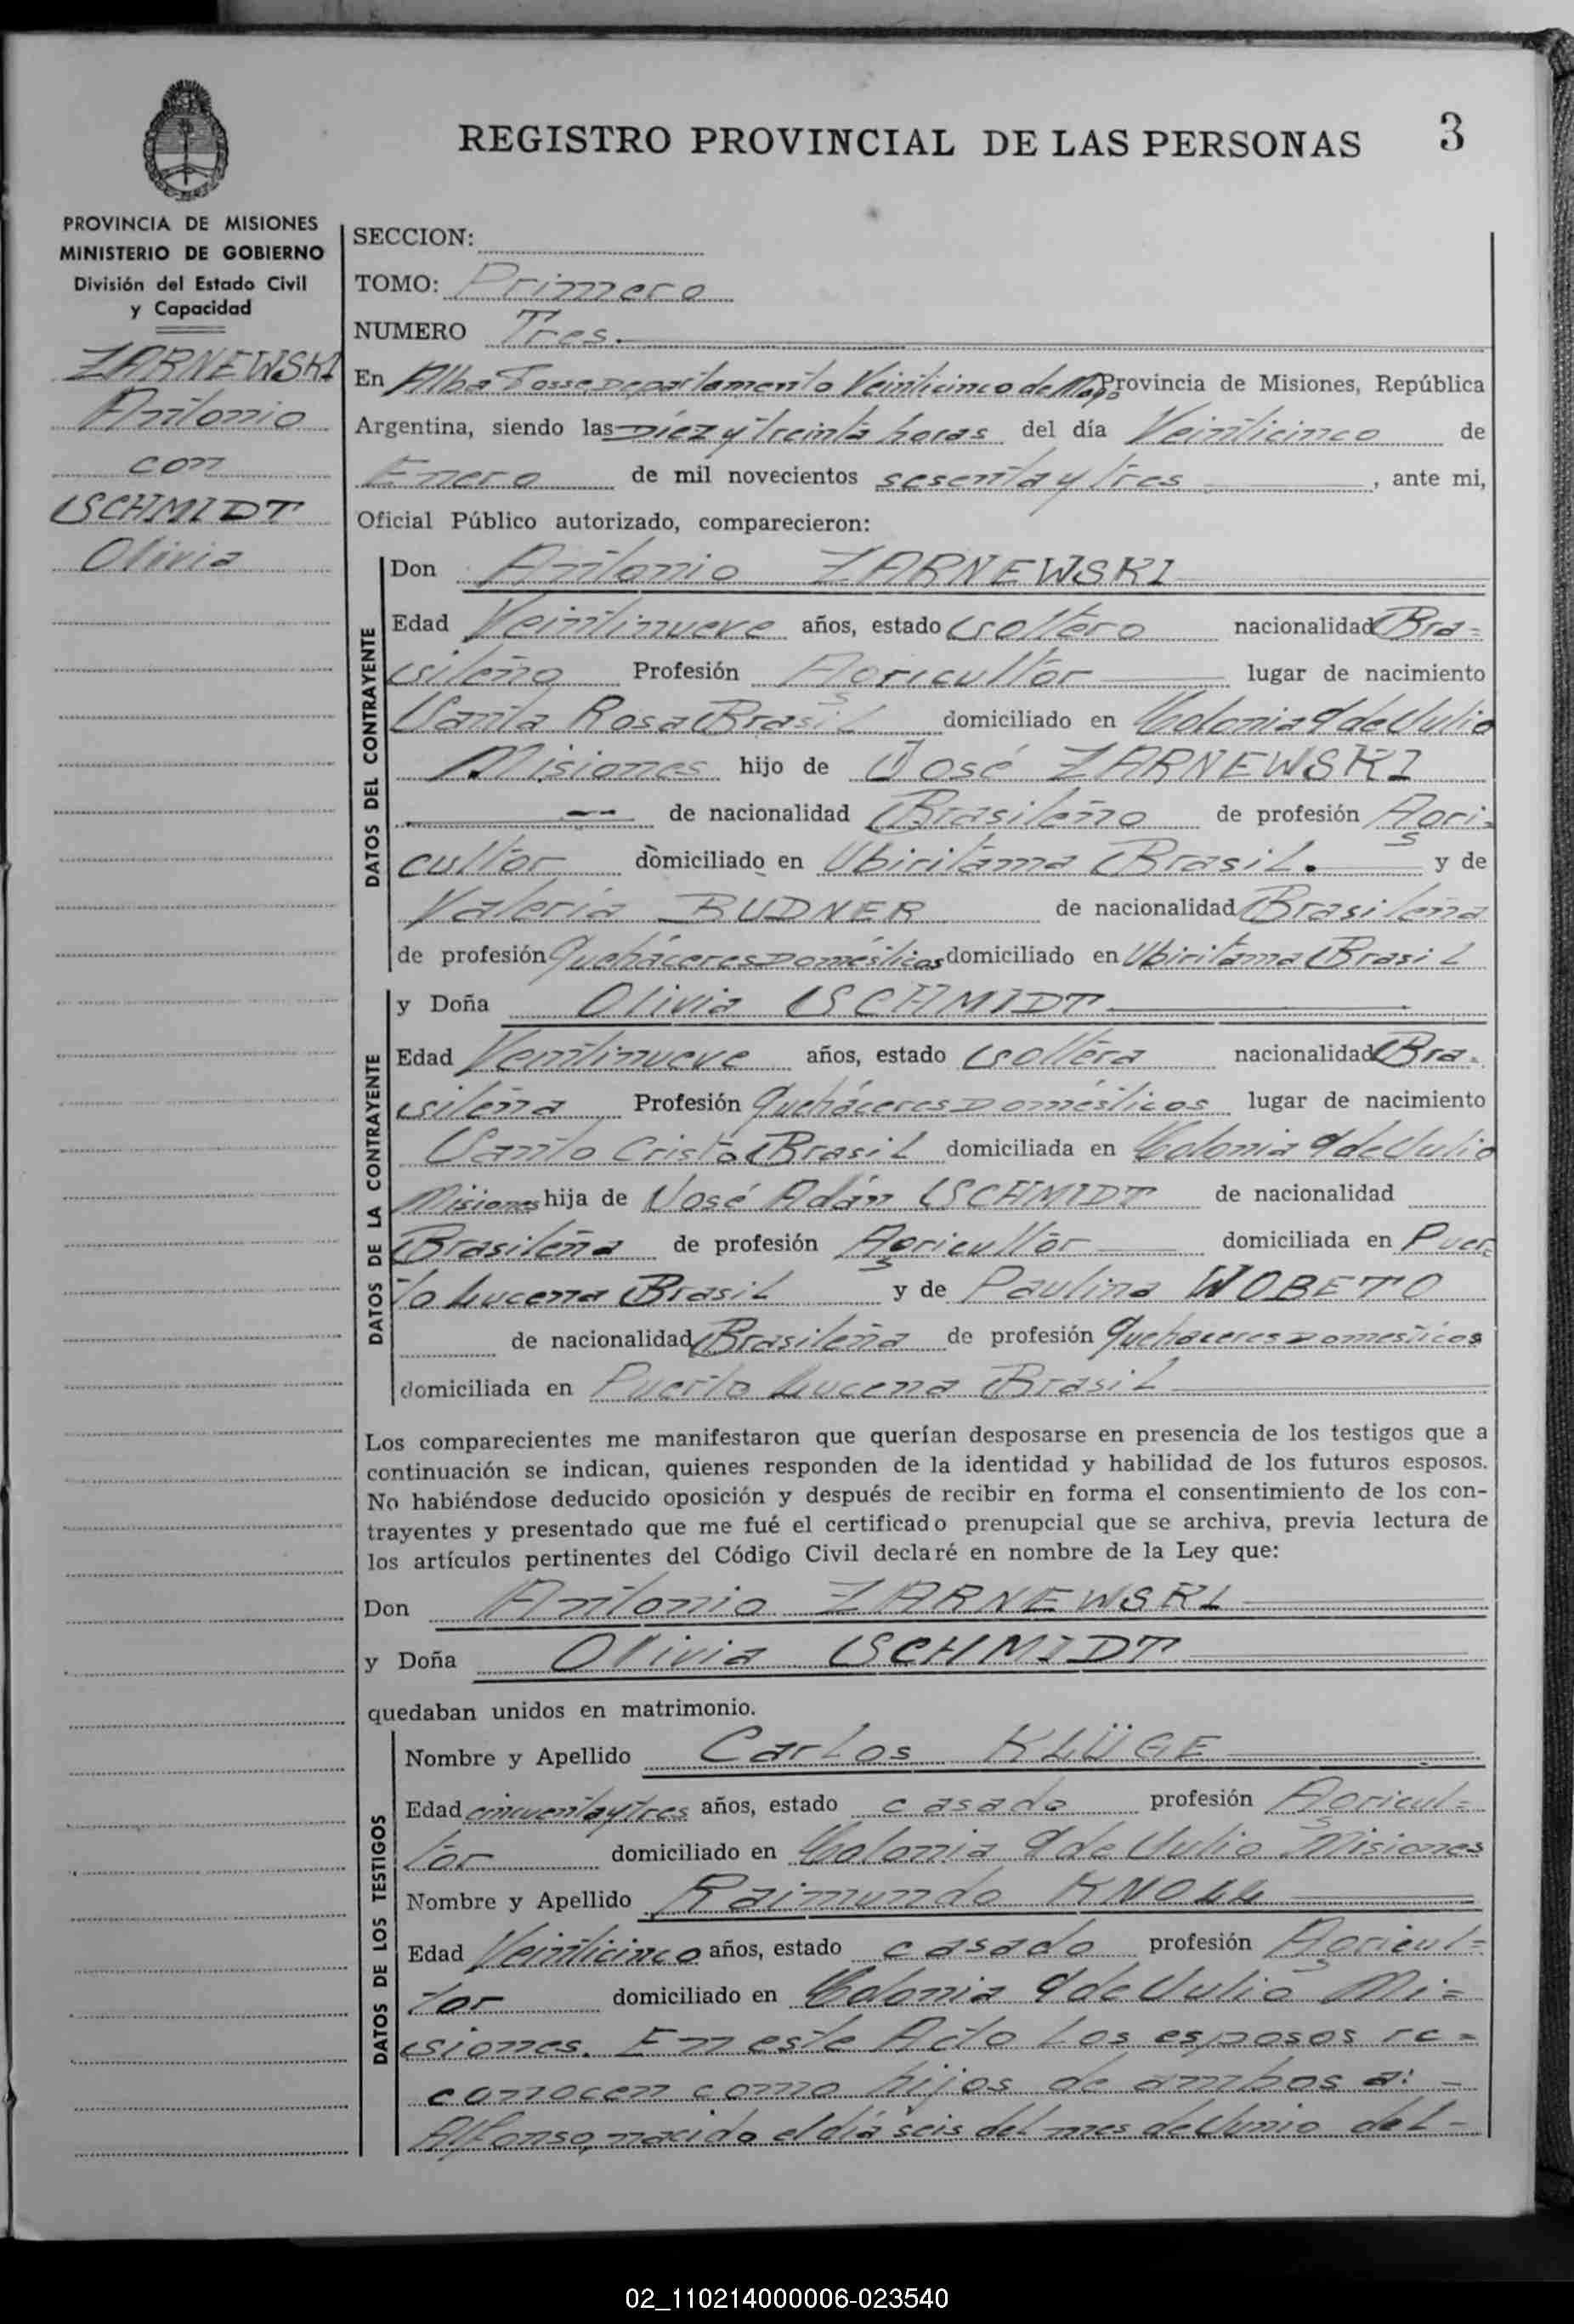 REGISTRO PROVINCIAL DE LAS PERSONAS 3
PROVINCIA DE MISIONES
MINISTERIO DE GOBIERNO
División del Estado Civil
y Capacidad
ZARNEWSKI
Antonio
con
SCHMIDT
Olivia
SECCION:
TOMO: Primero
NUMERO Tres.
En Alba Posse Departamento Veinticinco de Mayo Provincia de Misiones, República
Argentina, siendo las Diéz y treinta horas del día Veinticinco de
Enero de mil novecientos sesenta y tres, ante mi,
Oficial Público autorizado, comparecieron:
DATOS DEL CONTRAYENTE
Don Antonio ZARNEWSKI
Edad Veintinueve años, estado soltero nacionalidad Bra=
sileño Profesión Agricultor lugar de nacimiento
Santa Rosa Brasil domiciliado en Colonia 9 de Julio
Misiones hijo de José ZARNEWSKI
de nacionalidad Brasileño de profesión Agri=
cultor domiciliado en Ubiritama Brasil. y de
Valeria BUDNER de nacionalidad Brasileña
de profesión Quehaceres Domésticos domiciliado en Ubiritama Brasil
DATOS DE LA CONTRAYENTE
y Doña Olivia SCHMIDT
Edad Ventinueve años, estado soltera nacionalidad Bra=
sileña Profesión Quehaceres Domésticos lugar de nacimiento
Santo Cristo Brasil domiciliada en Colonia 9 de Julio
Misiones hija de José Adán SCHMIDT de nacionalidad
Brasileña de profesión Agricultor domiciliada en Puer
to Lucena Brasil y de Paulina WOBETO
de nacionalidad Brasileña de profesión Quehaceres Domesticos
domiciliada en Puerto Lucena Brasil
Los comparecientes me manifestaron que querían desposarse en presencia de los testigos que a
continuación se indican, quienes responden de la identidad y habilidad de los futuros esposos.
No habiéndose deducido oposición y después de recibir en forma el consentimiento de los con-
trayentes y presentado que me fué el certificado prenupcial que se archiva, previa lectura de
los artículos pertinentes del Código Civil declaré en nombre de la Ley que:
Don Antonio ZARNEWSKI
y Doña Olivia SCHMIDT
quedaban unidos en matrimonio.
DATOS DE LOS TESTIGOS
Nombre y Apellido Carlos KLÜGE
Edad cincuenta y tres años, estado casado profesión Agricul=
tor domiciliado en Colonia 9 de Julio Misiones
Nombre y Apellido Raimundo KNOLL
Edad Veinticinco años, estado casado profesión Agricul=
tor domiciliado en Colonia 9 de Julio Mi=
siones. En este Acto los esposos re=
conocen como hijos de ambos a: -
Alfonso, nacido el día seis del mes de Junio del -
02_110214000006-023540